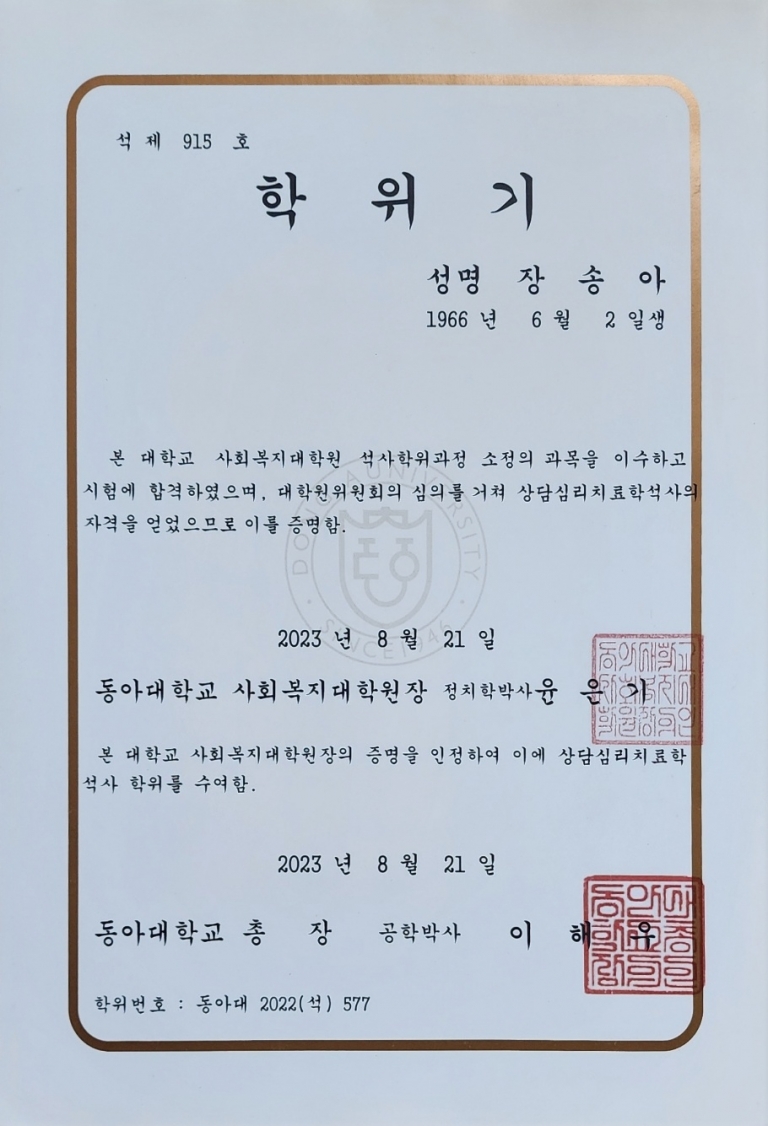 석 제 915 호
학 위 기
성명 장 송 아
1966 년 6 월 2 일생
본 대학교 사회복지대학원 석사학위과정 소정의 과목을 이수하고
시험에 합격하였으며, 대학원위원회의 심의를 거쳐 상담심리치료학석사의
자격을 얻었으므로 이를 증명함.
DONG-A UNIVERSITY
SINCE 1946
2023 년 8 월 21 일
동아대학교 사회복지대학원장 정치학박사 윤 은 기
본 대학교 사회복지대학원장의 증명을 인정하여 이에 상담심리치료학
석사 학위를 수여함.
2023 년 8 월 21 일
동아대학교 총 장 공학박사 이 해 우
학위번호 : 동아대 2022(석) 577